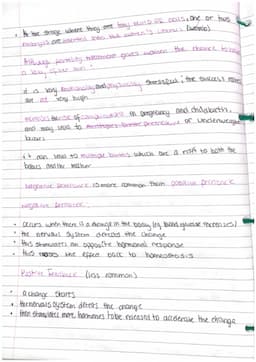 • At the stage where they are tiny balls of cells, one or two
embryos are inserted into the mother's uterus (womb)
Although fertility treatment gives women the chance to have
a baby of her own:
it is very emotionally and physically stressful, the success rates
are not very high
increases the risk of complications in pregnancy and childbirth,
and may lead to premature or underweight
babies
it can lead to multiple births which are a risk to both the
babies and the mother
Negative feedback is more common than positive feedback
Negative feedback:
• occurs when there is a change in the body (eg blood glucose increases)
• the nervous system detects the change
• this stimulates an opposite hormonal response
• this the effect back to homeostasis
Positive feedback (less common)
• a change starts
• the nervous system detects the change
• this stimulates more hormones to be released to accelerate the change